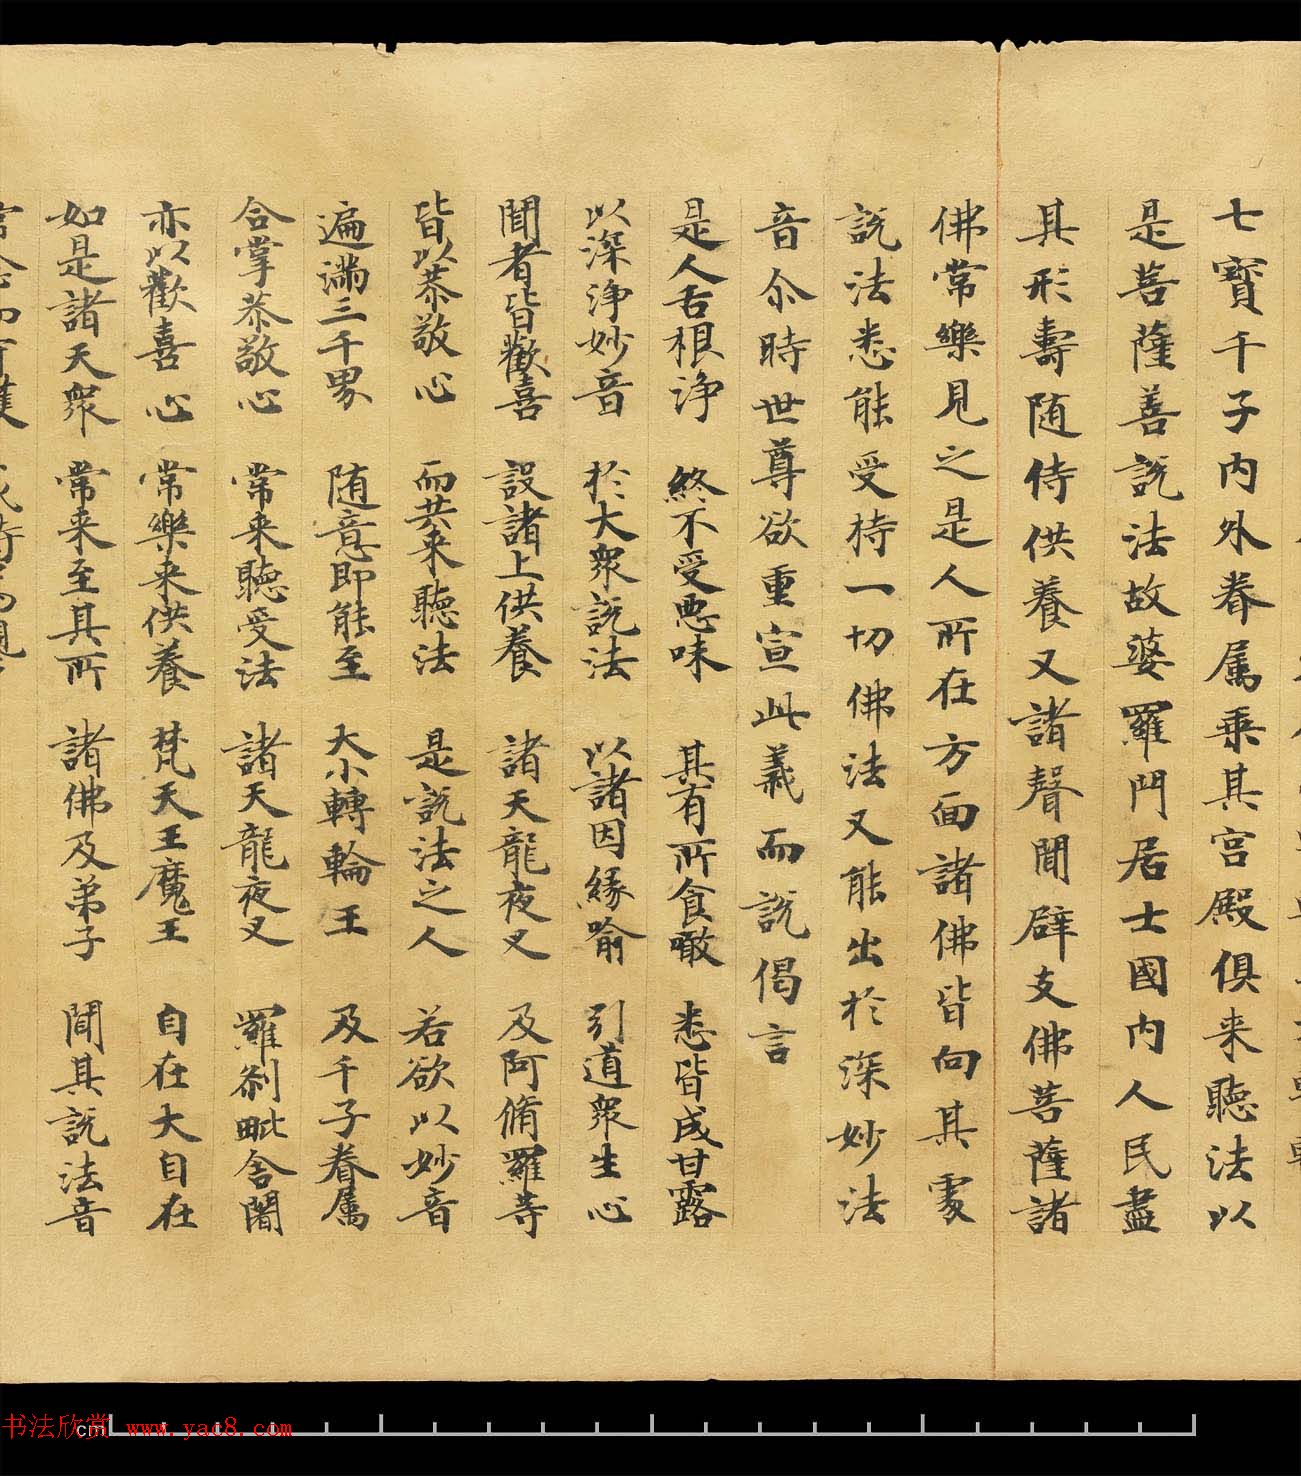 七寶千子內外眷属乗其宫殿俱来聽法以
是菩薩善說法故婆羅門居士國內人民盡
其形壽随侍供養又諸聲聞辟支佛菩薩諸
佛常樂見之是人所在方面諸佛皆向其處
說法悉能受持一切佛法又能出於深妙法
音尒時世尊欲重宣此義而說偈言
是人舌根淨 終不受惡味 其有所食噉 悉皆成甘露
以深淨妙音 於大衆說法 以諸因緣喻 引道衆生心
聞者皆歡喜 設諸上供養 諸天龍夜叉 及阿脩羅等
皆以恭敬心 而共来聽法 是說法之人 若欲以妙音
遍滿三千界 随意即能至 大小轉輪王 及千子眷属
合掌恭敬心 常来聽受法 諸天龍夜叉 羅刹毗舍闍
亦以歡喜心 常樂来供養 梵天王魔王 自在大自在
如是諸天衆 常来至其所 諸佛及弟子 聞其說法音
书法欣赏 www.yac8.com
cm